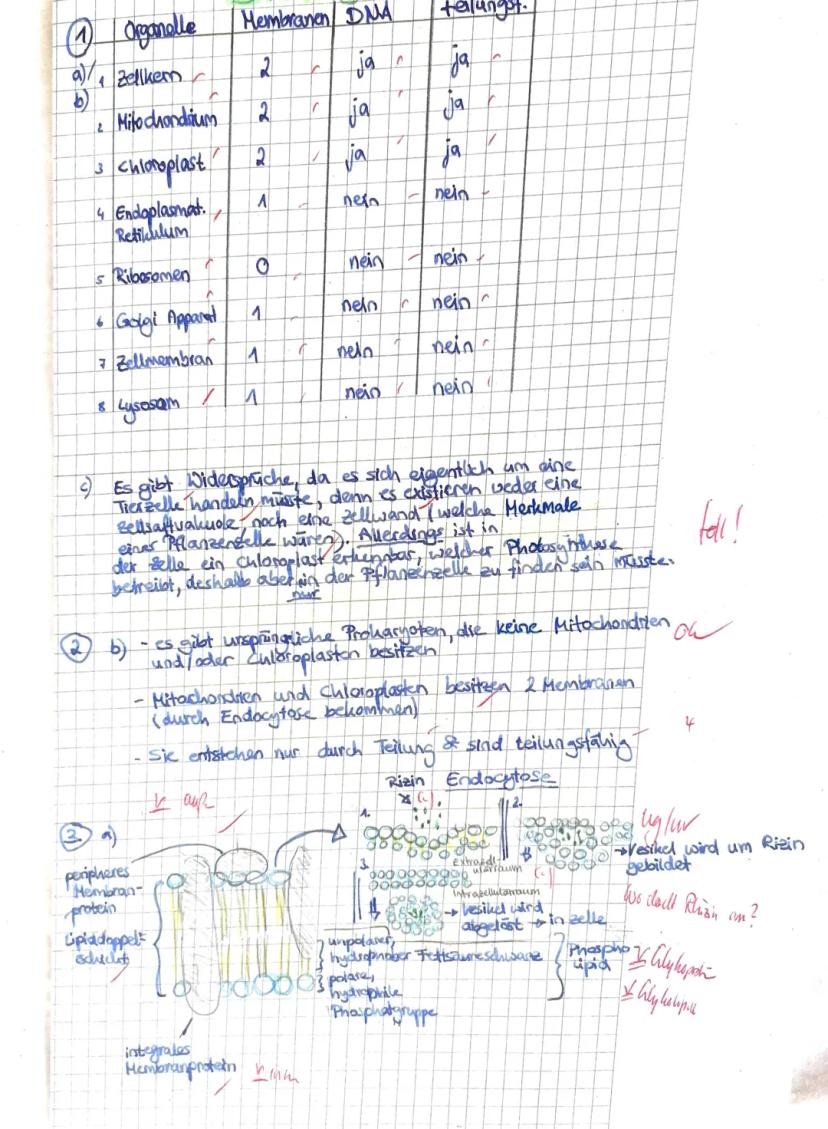 1 Organelle Membranen DNA teilungsf.
a)/ 1 Zellkern 2 ja ja
b)
2 Mitochondrium 2 ja ja
3 Chloroplast 2 ja ja
4 Endoplasmat. 1 nein nein
Retikulum
5 Ribosomen 0 nein nein
6 Golgi Apparat 1 nein nein
7 Zellmembran 1 nein nein
8 Lysosom 1 nein nein
c) Es gibt Widersprüche, da es sich eigentlich um eine
Tierzelle handeln müsste, denn es existieren weder eine
Zellsaftvakuole, noch eine Zellwand (welche Merkmale
einer Pflanzenzelle wären). Allerdings ist in
der Zelle ein Chloroplast erkennbar, welcher Photosynthese
betreibt, deshalb aber nur in der Pflanzenzelle zu finden sein müsste.
toll!
2 b) - es gibt ursprüngliche Prokaryoten, die keine Mitochondrien
und/oder Chloroplasten besitzen
- Mitochondrien und Chloroplasten besitzen 2 Membranen
(durch Endocytose bekommen)
- Sie entstehen nur durch Teilung & sind teilungsfähig
4
Rizin Endocytose
3 a)
1. 2.
peripheres
Membran-
protein
Lipiddoppel-
schicht
→ Vesikel wird um Rizin
gebildet
3.
Extrazell
ulärraum
Intrazellularraum
→ Vesikel wird
abgelöst → in Zelle
unpolarer,
hydrophober Fettsäureschwanz
polare,
hydrophile
Phosphatgruppe
Phospho
lipid
integrales
Membranprotein